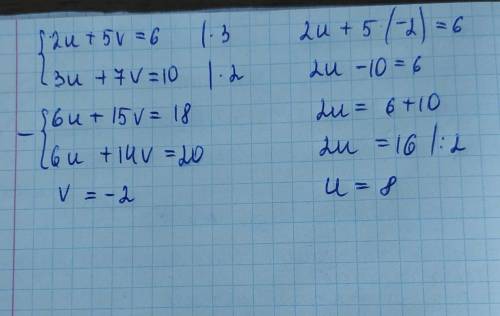 {2u + 5v = 6 | · 3
{3u + 7v = 10 | · 2
-{6u + 15v = 18
{6u + 14v = 20
v = -2
2u + 5 (-2) = 6
2u - 10 = 6
2u = 6 + 10
2u = 16 | : 2
u = 8